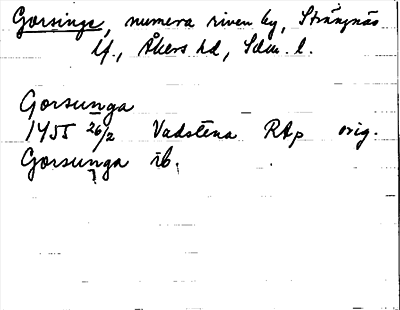 Gorsinge, numera riven by, Strängnäs
lf., Åkers hd, Sdm. l.
Gorsunga
1455 26/2 Vadstena RAp orig.
Gorsunga ib.